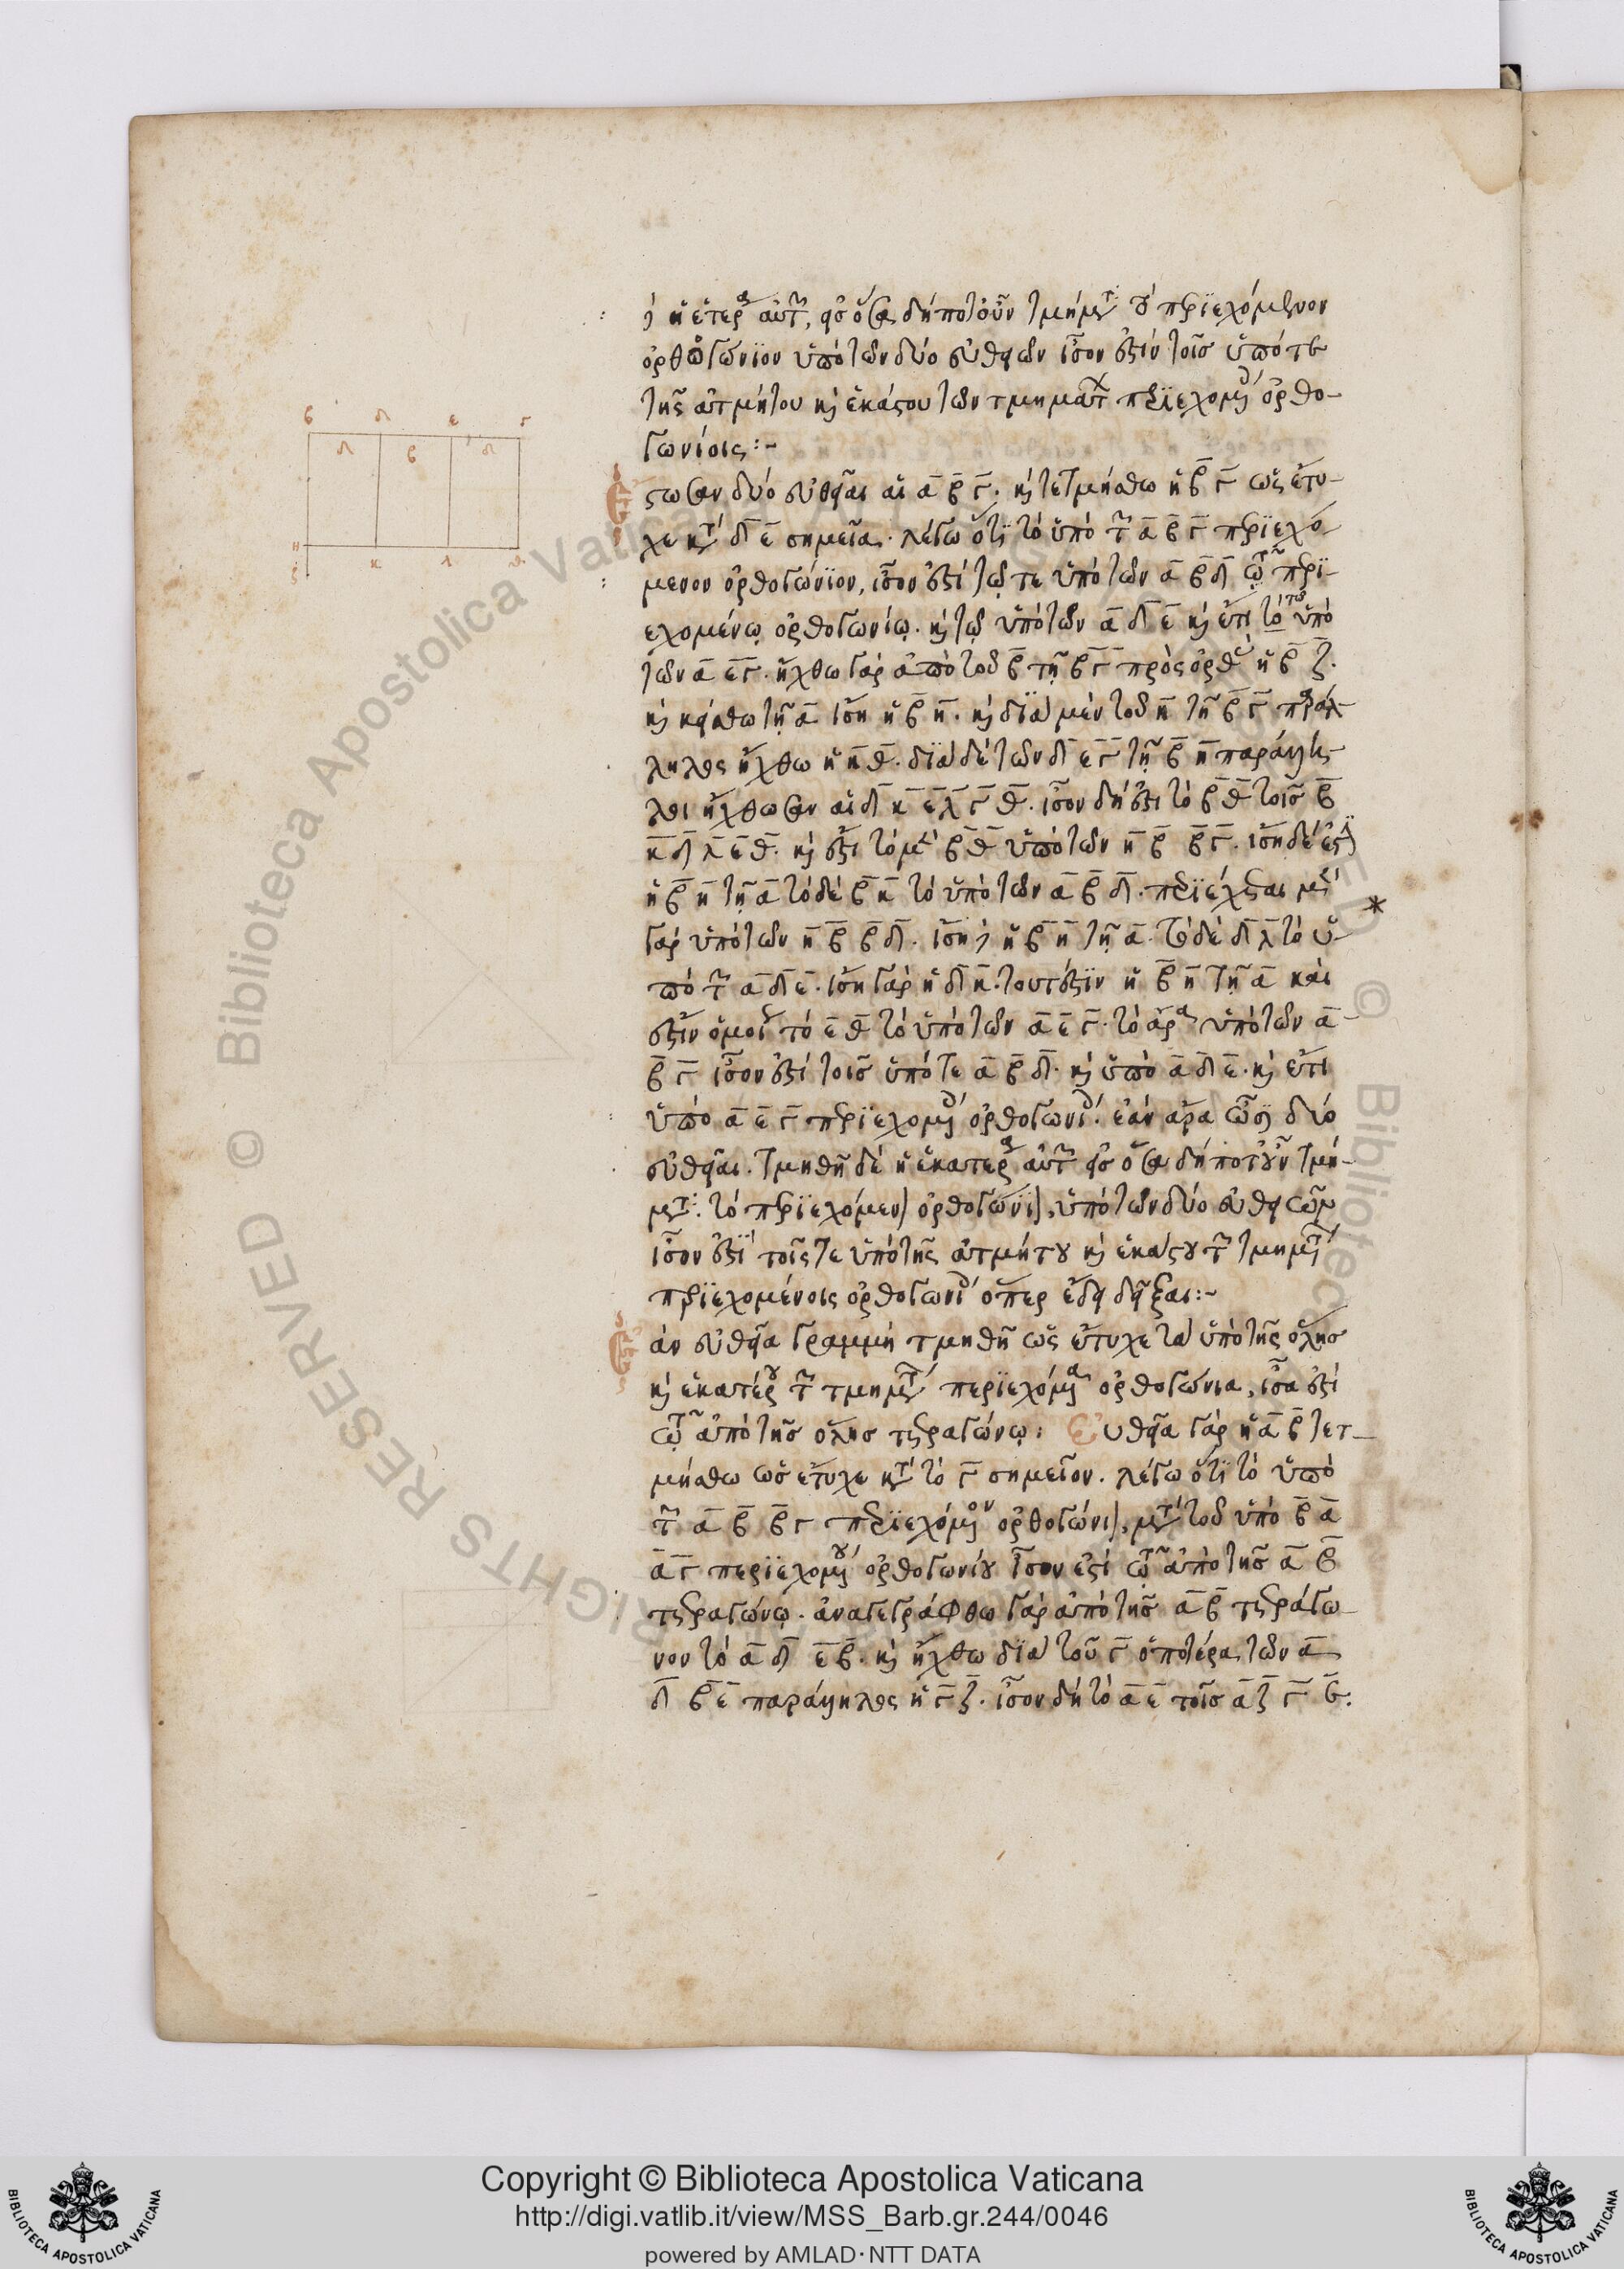 δὲ ἡ ἑτέρα αὐτῶν, εἰς ὅσα δήποτοῦν τμήματα τὸ περϊεχόμενον
ὀρθογώνϊον ὑπὸ τῶν δύο εὐθειῶν ἴσον ἐστὶν τοῖς ὑπό τε
τῆς ἀτμήτου κ̀ ἑκάστου τῶν τμημάτων περϊεχομένοις ὀρθο-
γωνίοις:-
Ἔστωσαν δύο εὐθεῖαι αἱ α̅ β̅ γ̅. κ̀ τετμήσθω ἡ β̅ γ̅ ὡς ἔτυ-
χε κατὰ δ̅ ε̅ σημεῖα. λέγω ὅτϊ τὸ ὑπὸ τῶν α̅ β̅ γ̅ περϊεχό
μενον ὀρθογώνϊον, ἴσον ἐστὶ τῷ τε ὑπὸ τῶν α̅ β̅ δ̅ περϊ-
εχομένῳ ὀρθογωνίῳ. κ̀ τῷ ὑπὸ τῶν α̅ δ̅ ε̅ κ̀ ἔτι τὸ τῷ ὑπὸ
τῶν α̅ ε̅ γ̅. ἤχθω γὰρ ἀπὸ τοῦ β̅ τῇ β̅ γ̅ πρὸς ὀρθὰς ἡ β̅ ζ̅.
κ̀ κείσθω τῇ α̅ ἴση ἡ β̅ η̅. κ̀ δϊὰ μὲν τοῦ η̅ τῇ β̅ γ̅ παράλ
ληλος ἤχθω ἡ η̅ θ̅. δϊὰ δὲ τῶν δ̅ ε̅ γ̅ τῇ β̅ η̅ παράλλη-
λοι ἤχθωσαν αἱ δ̅ κ̅ ε̅ λ̅ γ̅ θ̅. ἴσον δή ἐστι τὸ β̅ θ̅ τοῖς β̅
κ̅ δ̅ λ̅ ε̅ θ̅. κ̀ ἔστι τὸ μὲν β̅ θ̅ ὑπὸ τῶν η̅ β̅ β̅ γ̅. ἴση δέ ἐστϊν
ἡ β̅ η̅ τῇ α̅ τὸ δὲ β̅ κ̅ τὸ ὑπὸ τῶν α̅ β̅ δ̅. περϊέχεται μὲν *
γὰρ ὑπὸ τῶν η̅ β̅ β̅ δ̅. ἴση δὲ ἡ β̅ η̅ τῇ α̅. τὸ δὲ δ̅ λ̅ τὸ ὑ-
πὸ τῶν α̅ δ̅ ε̅. ἴση γὰρ ἡ δ̅ κ̅. τουτέστϊν ἡ β̅ η̅ τῇ α̅ καὶ
ἔστϊν ὁμοίως τὸ ε̅ θ̅ τὸ ὑπὸ τῶν α̅ ε̅ γ̅. τὸ ἄρα ὑπὸ τῶν α̅
β̅ γ̅ ἴσον ἐστὶ τοῖς ὑπό τε α̅ β̅ δ̅. κ̀ ὑπὸ α̅ δ̅ ε̅. κ̀ ἔτι
ὑπὸ α̅ ε̅ γ̅ περϊεχομένοις ὀρθογωνίοις. ἐὰν ἄρα ὦσϊ δύο
εὐθεῖαι. τμηθῇ δὲ ἡ ἑκατέρα αὐτῶν εἰς ὅσα δήποτοῦν τμή-
ματα: τὸ περϊεχόμενον ὀρθογώνϊον, ὑπὸ τῶν δύο εὐθειῶν
ἴσον ἐστϊ τοῖς τε ὑπὸ τῆς ἀτμήτου κ̀ ἑκάστου τῶν τμημάτων
περϊεχομένοις ὀρθογωνίοις ὅπερ ἔδει δεῖξαι:-
Ἐὰν εὐθεῖα γραμμὴ τμηθῇ ὡς ἔτυχε τὰ ὑπὸ τῆς ὅλης
κ̀ ἑκατέρου τῶν τμημάτων περϊεχόμενα ὀρθογώνια, ἴσα ἐστὶ
τῷ ἀπὸ τῆς ὅλης τετραγώνῳ: Εὐθεῖα γὰρ ἡ α̅ β̅ τετ-
μήσθω ὡς ἔτυχε κατὰ τὸ γ̅ σημεῖον. λέγω ὅτϊ τὸ ὑπὸ
τῶν α̅ β̅ β̅ γ περϊεχόμενον ὀρθογώνιον, μετὰ τοῦ ὑπὸ β̅ α̅
α̅ γ̅ περϊεχομένου ὀρθογωνίου ἴσον ἐστὶ τῷ ἀπὸ τῆς α̅ β̅
τετραγώνῳ. ἀναγεγράφθω γὰρ ἀπὸ τῆς α̅ β̅ τετράγω
νον τὸ α̅ δ̅ ε̅ β̅. κ̀ ἤχθω δϊὰ τοῦ γ̅ ὁποτέρᾳ τῶν α̅
δ̅ β̅ ε̅ παράλληλος ἡ γ̅ ζ̅. ἴσον δὴ τὸ α̅ ε̅ τοῖς α̅ ζ̅ γ̅ ε̅.
β δ ε γ
δ β δ
η κ λ θ
ζ
Copyright © Biblioteca Apostolica Vaticana
http://digi.vatlib.it/view/MSS_Barb.gr.244/0046
powered by AMLAD·NTT DATA
BIBLIOTECA APOSTOLICA VATICANA
BIBLIOTECA APOSTOLICA VATICANA